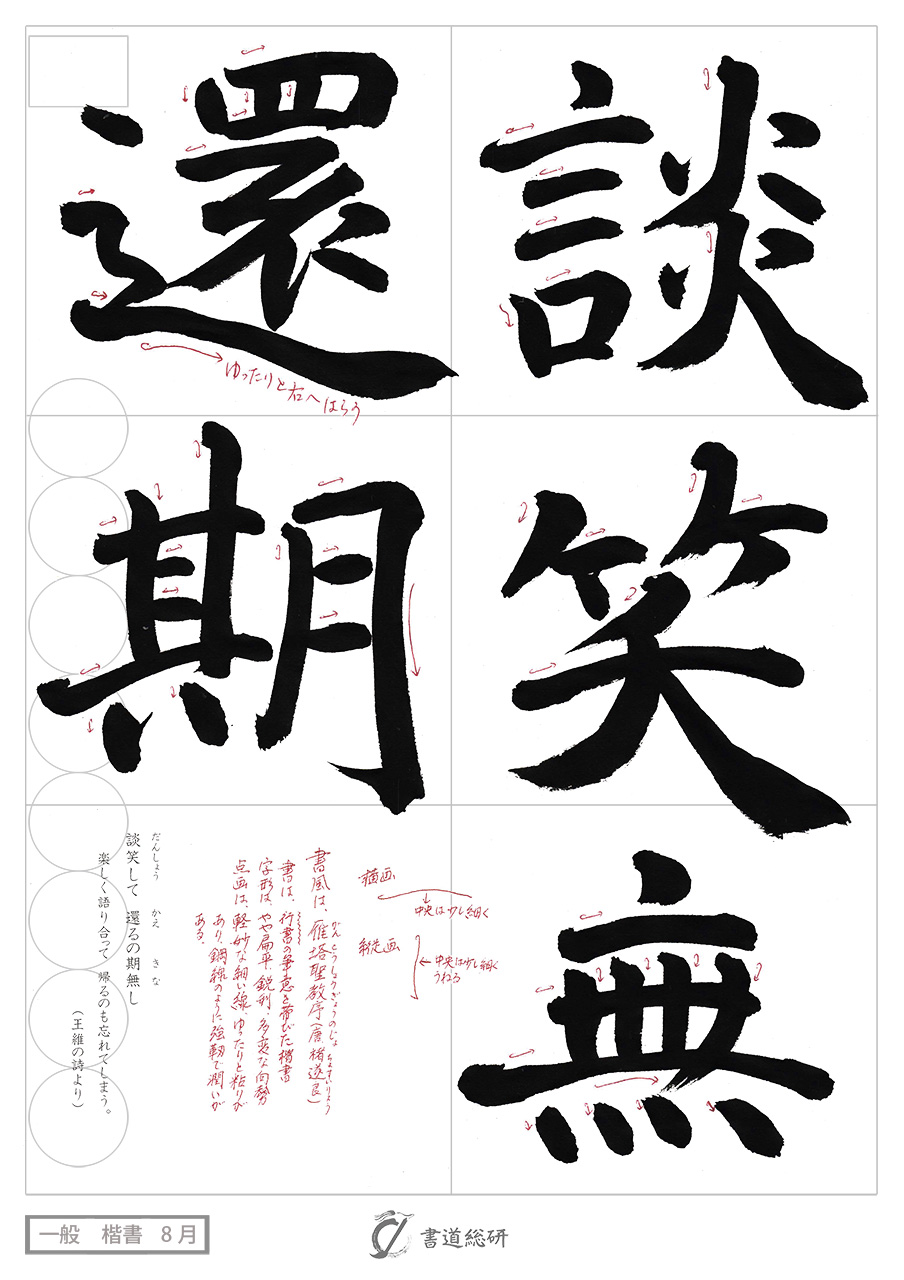 談笑無
還期
ゆったりと右へはらう
横画
中央は少し細く
縦画
中央は少し細く
うねる
書風は、雁塔聖教序(唐 褚遂良)
がんとうしょうぎょうのじょ ちょすいりょう
書は、行書の筆意を帯びた楷書
字形は、やや扁平、鋭利、多変な向勢
点画は、軽妙な細い線、ゆったりと粘りが
あり、鋼線のように強靭で潤いが
ある。
だんしょう かえ きな
談笑して 還るの期無し
楽しく語り合って 帰るのも忘れてしまう。
(王維の詩より)
一般 楷書 8月
書道総研